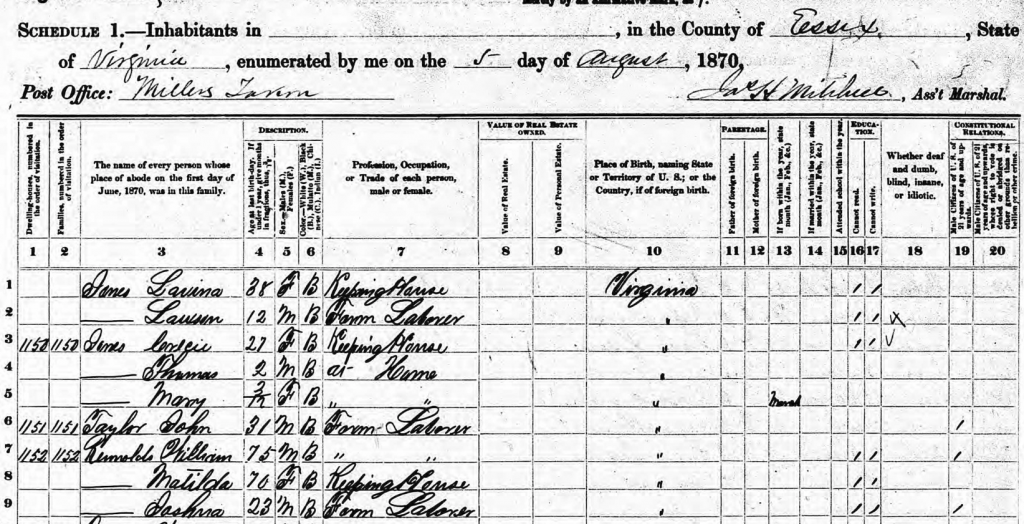 SCHEDULE 1.—Inhabitants in , in the County of Essex, State
of Virginia, enumerated by me on the 5 day of August, 1870,
Post Office: Millers Tavern Jas H Mitchell, Ass't Marshal.
DESCRIPTION. VALUE OF REAL ESTATE OWNED. PARENTAGE. EDUCATION. CONSTITUTIONAL RELATIONS.
Dwelling-houses, numbered in the order of visitation.
Families, numbered in the order of visitation.
The name of every person whose place of abode on the first day of June, 1870, was in this family.
Age at last birth-day. If under 1 year, give months in fractions, thus,
Sex.—Males (M.), Females (F.)
Color.—White (W.), Black (B.), Mulatto (M.), Chinese (C.), Indian (I.)
Profession, Occupation, or Trade of each person, male or female.
Value of Real Estate.
Value of Personal Estate.
Place of Birth, naming State or Territory of U. S.; or the Country, if of foreign birth.
Father of foreign birth.
Mother of foreign birth.
If born within the year, state month (Jan., Feb., &c.)
If married within the year, state month (Jan., Feb., &c.)
Attended school within the year.
Cannot read.
Cannot write.
Whether deaf and dumb, blind, insane, or idiotic.
Male Citizens of U. S. of 21 years of age and upwards.
Male Citizens of U. S. of 21 years of age and upwards, where right to vote is denied or abridged on other grounds than rebellion or other crime.
1 2 3 4 5 6 7 8 9 10 11 12 13 14 15 16 17 18 19 20
1 Jones Lavina 38 F B Keeping House Virginia / /
2 —— Lawson 12 M B Farm Laborer " / / x
3 1150 1150 Jones 27 F B Keeping House " / / ✓
4 —— Thomas 2 M B at Home "
5 —— Mary 3/12 F B " " " March
6 1151 1151 Taylor John 31 M B Farm Laborer " /
7 1152 1152 William 75 M B " " " / / /
8 —— Matilda 70 F B Keeping House " / /
9 —— Joshua 23 M B Farm Laborer " / / /